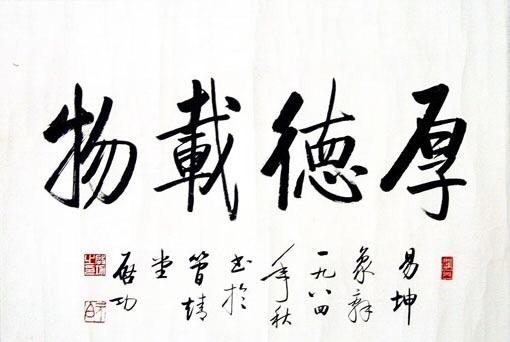 厚德載物
易坤
象辭
一九八四
年秋
書於
堂
啟功